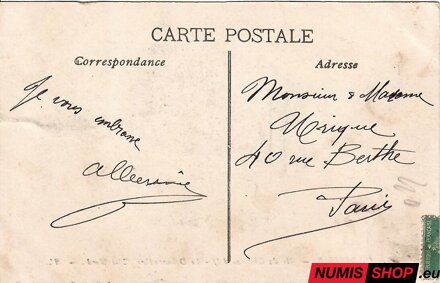 CARTE POSTALE
Correspondance
Adresse
Je vous embrasse
Monsieur & Madame
40 rue Berthe
Paris
NUMIS SHOP.eu